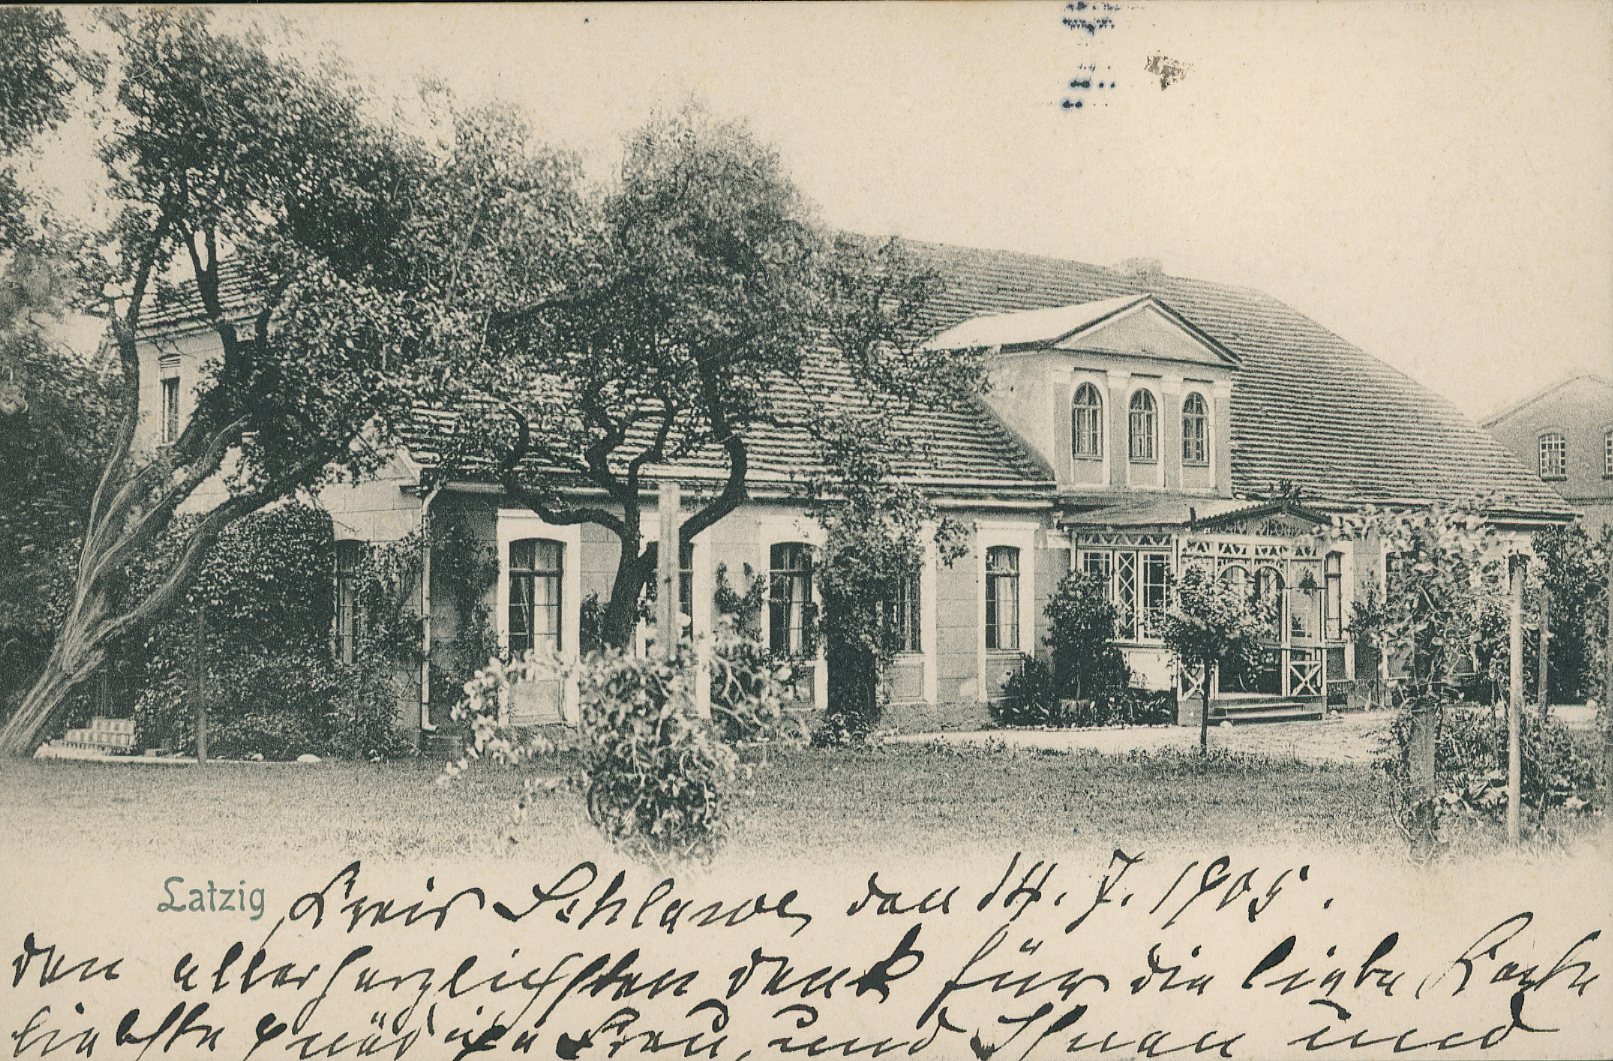 Latzig Kreis Schlawe, den 14. 7. 1905.
den allerherzlichsten Dank für die liebe Karte
liebste gnädige Frau, und Ihnen und